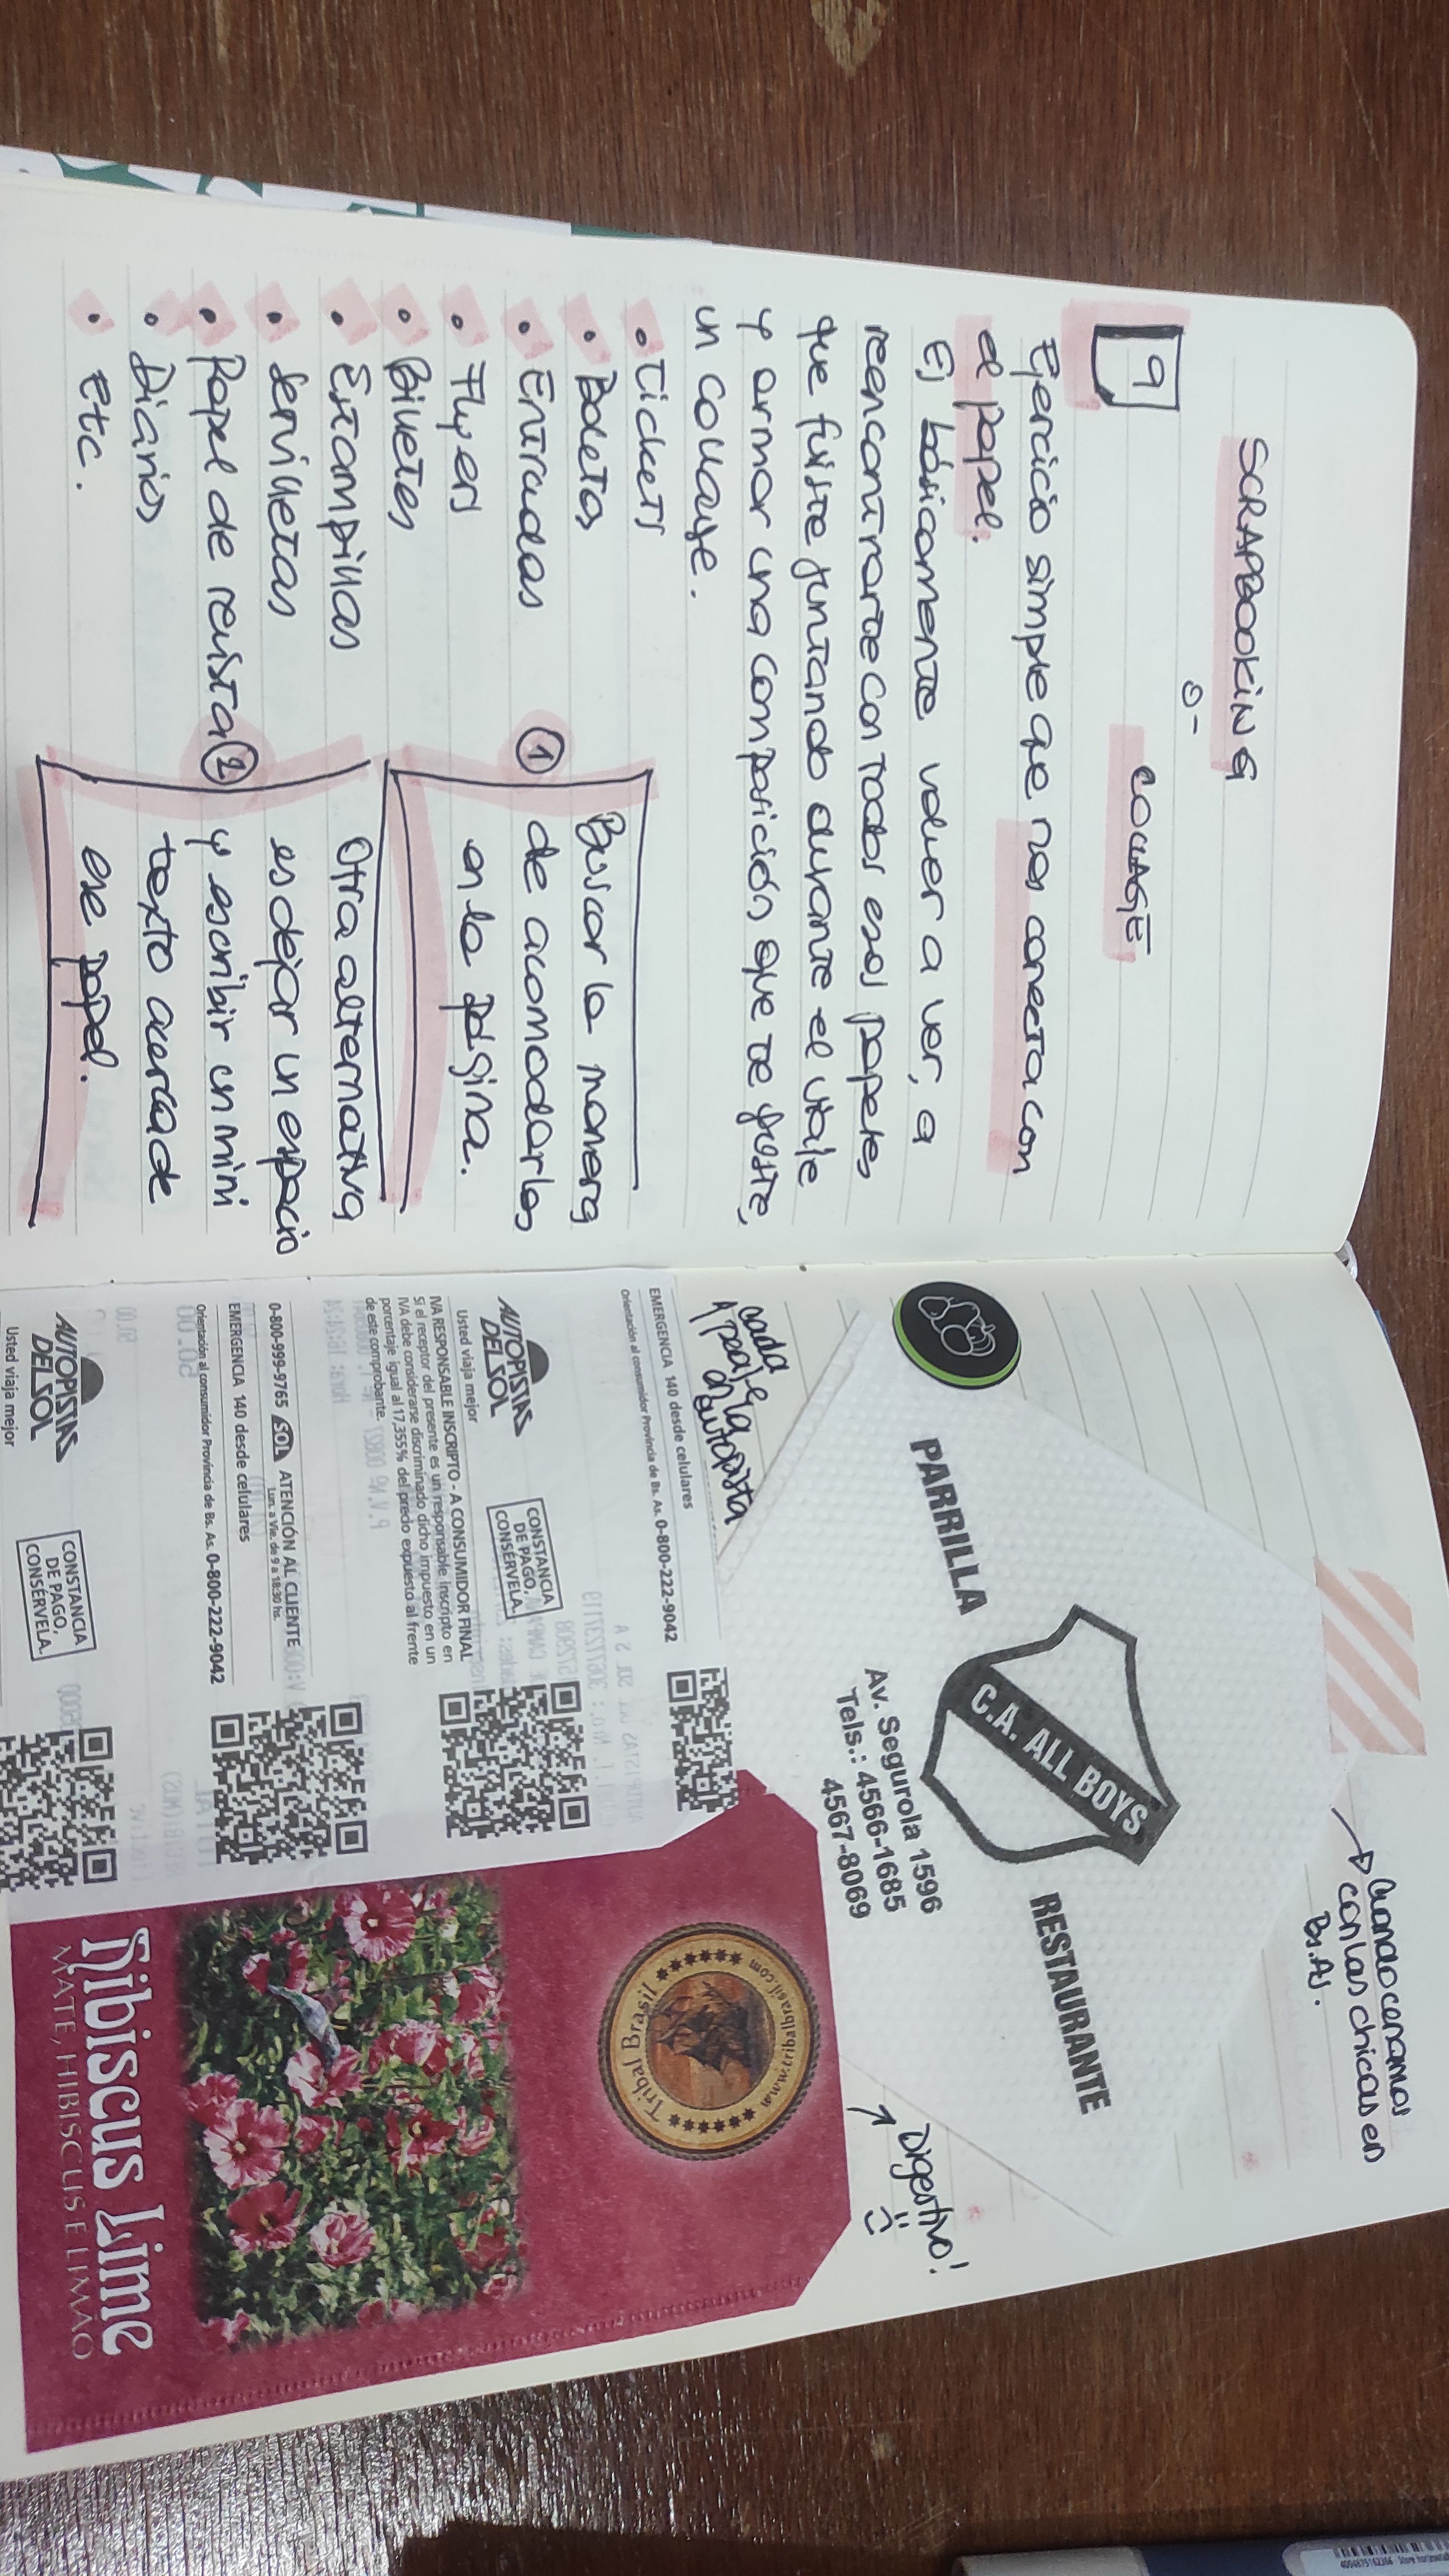 SCRAPBOOKING
o-
COLLAGE
9
Ejercicio simple que nos conecta con
el papel.
Es básicamente volver a ver, a
reencontrarte con todos esos papeles
que fuiste juntando durante el viaje
y armar una composición que te guste,
un collage.
• Tickets
• Boletos
• Entradas
• Flyers
• Billetes
• Estampillas
• Servilletas
• Papel de revista
• Diarios
• Etc.
① Buscar la manera
de acomodarlos
en la página.
② Otra alternativa
es dejar un espacio
y escribir un mini
texto acerca de
ese papel.
Cuando cenamos
con las chicas en
Bs.As.
PARRILLA
C.A. ALL BOYS
RESTAURANTE
Av. Segurola 1596
Tels.: 4566-1685
4567-8069
Digestivo!
cada
peaje
autopista
EMERGENCIA 140 desde celulares
Orientación al consumidor Provincia de Bs. As. 0-800-222-9042
AUTOPISTAS
DEL SOL
Usted viaja mejor
CONSTANCIA
DE PAGO,
CONSÉRVELA.
IVA RESPONSABLE INSCRIPTO - A CONSUMIDOR FINAL
Si el receptor del presente es un responsable inscripto en
IVA debe considerarse discriminado dicho impuesto en un
porcentaje igual al 17,355% del precio expuesto al frente
de este comprobante.
0-800-999-9765 SOL ATENCIÓN AL CLIENTE
Lun. a Vie. de 9 a 18:30 hs.
EMERGENCIA 140 desde celulares
Orientación al consumidor Provincia de Bs. As. 0-800-222-9042
AUTOPISTAS
DEL SOL
Usted viaja mejor
CONSTANCIA
DE PAGO,
CONSÉRVELA.
Tribal Brasil
www.tribalbrasil.com
Hibiscus Lime
MATE, HIBISCUS E LIMÃO